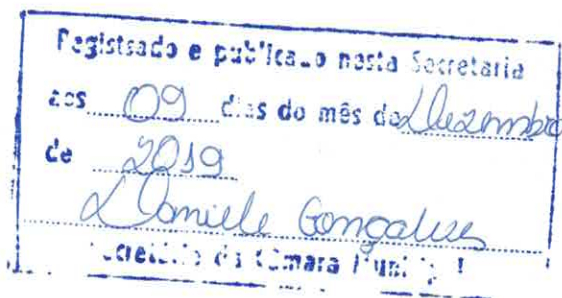 Registsado e publicado nesta Secretaria
aos 09 dias do mês de Dezembro
de 2019
Daniele Gonçalves
Secretário da Câmara Municipal